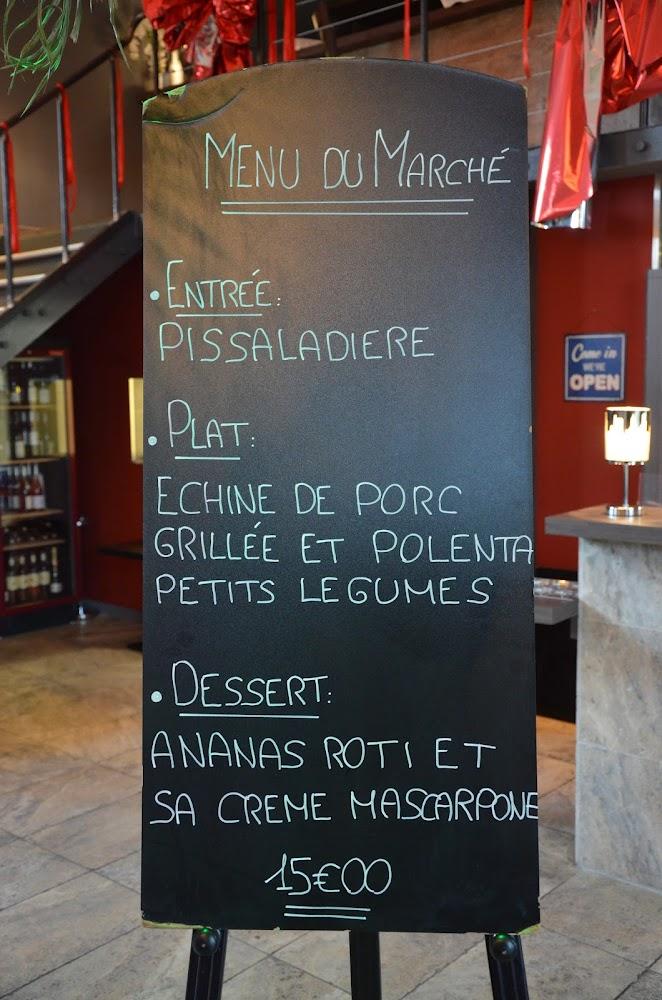 MENU DU MARCHÉ
• ENTRÉE:
PISSALADIERE
• PLAT:
ECHINE DE PORC
GRILLÉE ET POLENTA
PETITS LEGUMES
• DESSERT:
ANANAS ROTI ET
SA CREME MASCARPONE
15€00
Come in
WE'RE
OPEN